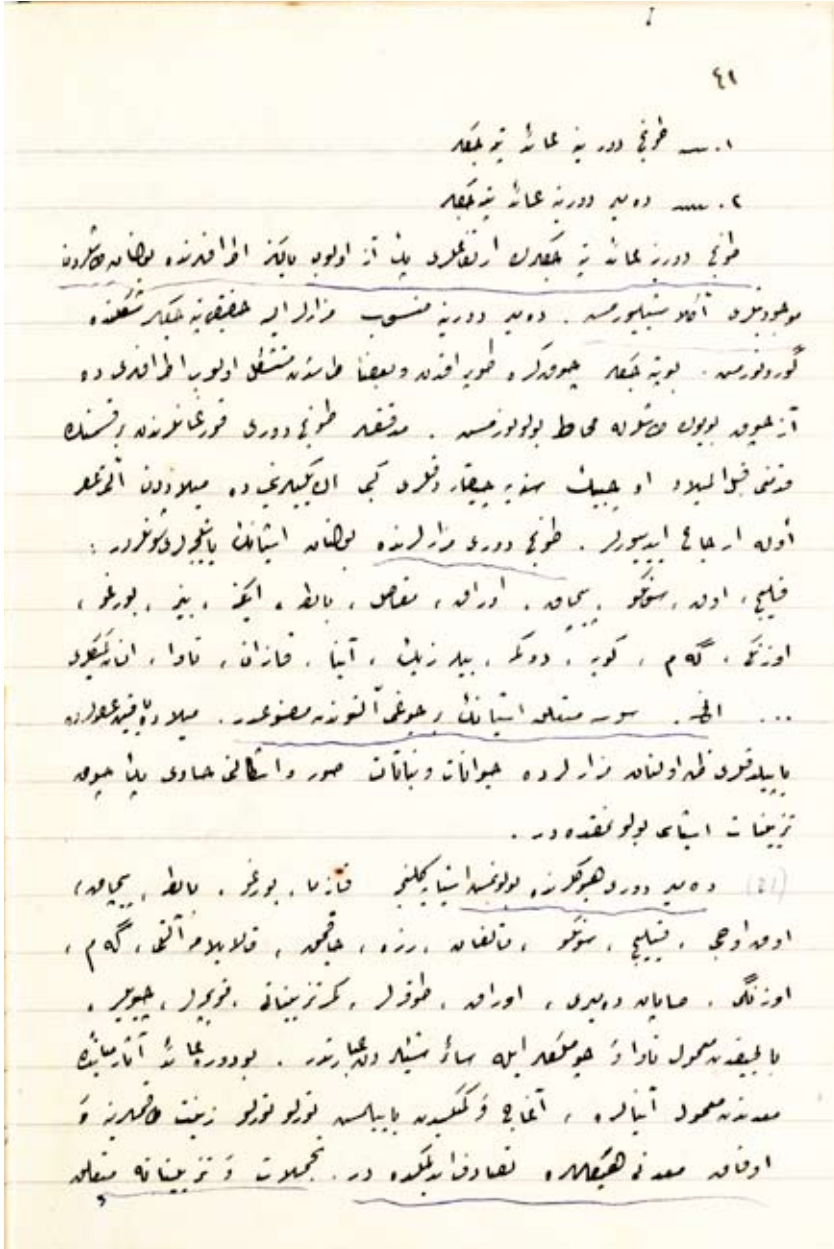 ٤١
١. — طونج دورینه عائد تپه جکلر
٢. — ده میر دورینه عائد تپه جکلر
طونج دورینه عائد تپه جکلرك ارتفاعلری پك آز اولوب یالكز اطرافلرنده بولنان طاشلردن
موجودیتلری آكلاشیلیورمش. ده میر دورینه منسوب مزارلر ایسه حقیقی تپه جکلر شكلنده
گورونورمش. بو تپه جکلر چوق كره طوپراقدن و بعضاً طاشدن متشكل اولوب اطرافلری ده
آز چوق بویوك طاشلرله محاط بولونورمش. مدققلر طونج دوری قورغانلرندن بر قسمنك
قدمنی قبل المیلاد اوچ بیك سنه یه چیقاردقلری كبی اك یكیلرینی ده میلاددن آلتی عصر
أوله ارجاع ایدییورلر. طونج دوری مزارلرنده بولنان اشیانك باشلیجه لری شونلردر:
قلیج، اوق، سونكو، بیچاق، اوراق، مقاص، بالطه، ایكنه، بیز، بورغو،
اوزنگی، گه م، كوپه، دوكمه، بیله زیك، آینا، قازان، تاوا،
... الخ. سوسه متعلق اشیانك چوغی آلتوندن مصنوعدر. میلاده یاقین عصرلرده
یاپیلدقلری ظن اولنان مزارلرده حیوانات و نباتات صور و اشكالنی حاوی پك چوق
تزیینات اشیاسی بولونمقده در.
ده میر دوری هیوكلرنده بولونمش اشیایه كلنجه قازما، بورغو، بالطه، بیچاق،
اوق اوجی، قیلیج، سونكو، قالقان، رزه، چاقمق، گه م،
اوزنگی، صاپان ده میری، اوراق، طوقه لر، كمر تزییناتی، چیویلر،
بالچیقدن معمول تاوا و چوملكلر ایله سائر شیلردن عبارتدر. بو دوره عائد آثار میاننده
معدندن معمول آینالره، آغاج و كمیكدن یاپیلمش تورلو تورلو زینت طاقملرینه و
اوفاق معدنی هیكللره تصادف ایدیلمكده در. تجملات و تزییناته متعلق